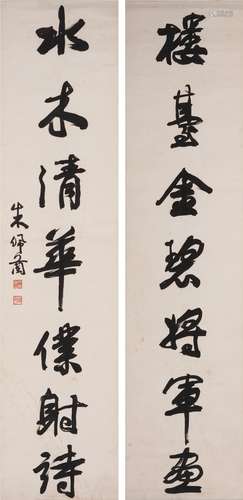 樓臺金碧將軍畫
水木清華僕射詩
朱佩蘭